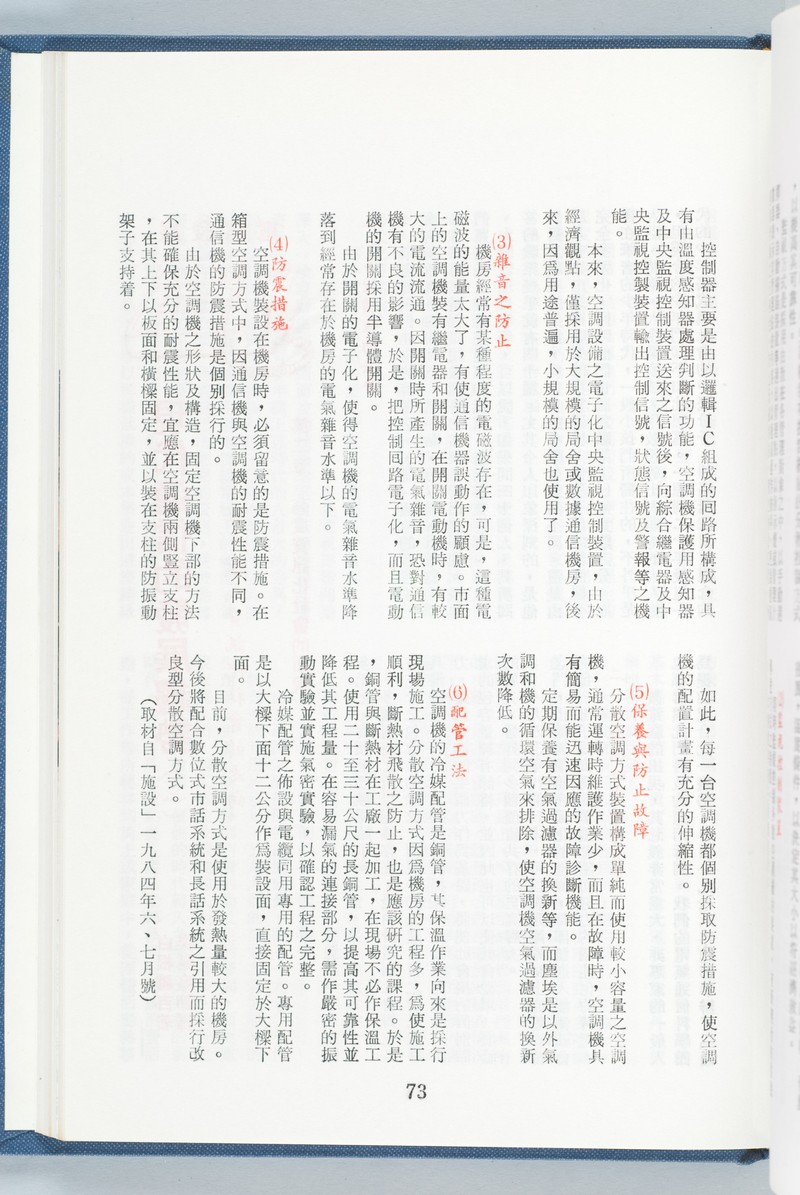 控制器主要是由以邏輯IC組成的回路所構成，具
有由溫度感知器處理判斷的功能，空調機保護用感知器
及中央監視控制裝置送來之信號後，向綜合繼電器及中
央監視控製裝置輸出控制信號，狀態信號及警報等之機
能。
本來，空調設備之電子化中央監視控制裝置，由於
經濟觀點，僅採用於大規模的局舍或數據通信機房，後
來，因爲用途普遍，小規模的局舍也使用了。
(3)雜音之防止
機房經常有某種程度的電磁波存在，可是，這種電
磁波的能量太大了，有使通信機器誤動作的顧慮。市面
上的空調機裝有繼電器和開關，在開關電動機時，有較
大的電流流通。因開關時所產生的電氣雜音，恐對通信
機有不良的影響，於是，把控制回路電子化，而且電動
機的開關採用半導體開關。
由於開關的電子化，使得空調機的電氣雜音水準降
落到經常存在於機房的電氣雜音水準以下。
(4)防震措施
空調機裝設在機房時，必須留意的是防震措施。在
箱型空調方式中，因通信機與空調機的耐震性能不同，
通信機的防震措施是個別採行的。
由於空調機之形狀及構造，固定空調機下部的方法
不能確保充分的耐震性能，宜應在空調機兩側豎立支柱
，在其上下以板面和橫樑固定，並以裝在支柱的防振動
架子支持着。
如此，每一台空調機都個別採取防震措施，使空調
機的配置計畫有充分的伸縮性。
(5)保養與防止故障
分散空調方式裝置構成單純而使用較小容量之空調
機，通常運轉時維護作業少，而且在故障時，空調機具
有簡易而能迅速因應的故障診斷機能。
定期保養有空氣過濾器的換新等，而塵埃是以外氣
調和機的循環空氣來排除，使空調機空氣過濾器的換新
次數降低。
(6)配管工法
空調機的冷媒配管是銅管，其保溫作業向來是採行
現場施工。分散空調方式因爲機房的工程多，爲使施工
順利，斷熱材飛散之防止，也是應該研究的課程。於是
，銅管與斷熱材在工廠一起加工，在現場不必作保溫工
程。使用二十至三十公尺的長銅管，以提高其可靠性並
降低其工程量。在容易漏氣的連接部分，需作嚴密的振
動實驗並實施氣密實驗，以確認工程之完整。
冷媒配管之佈設與電纜同用專用的配管。專用配管
是以大樑下面十二公分作爲裝設面，直接固定於大樑下
面。
目前，分散空調方式是使用於發熱量較大的機房。
今後將配合數位式市話系統和長話系統之引用而採行改
良型分散空調方式。
（取材自「施設」一九八四年六、七月號）
73